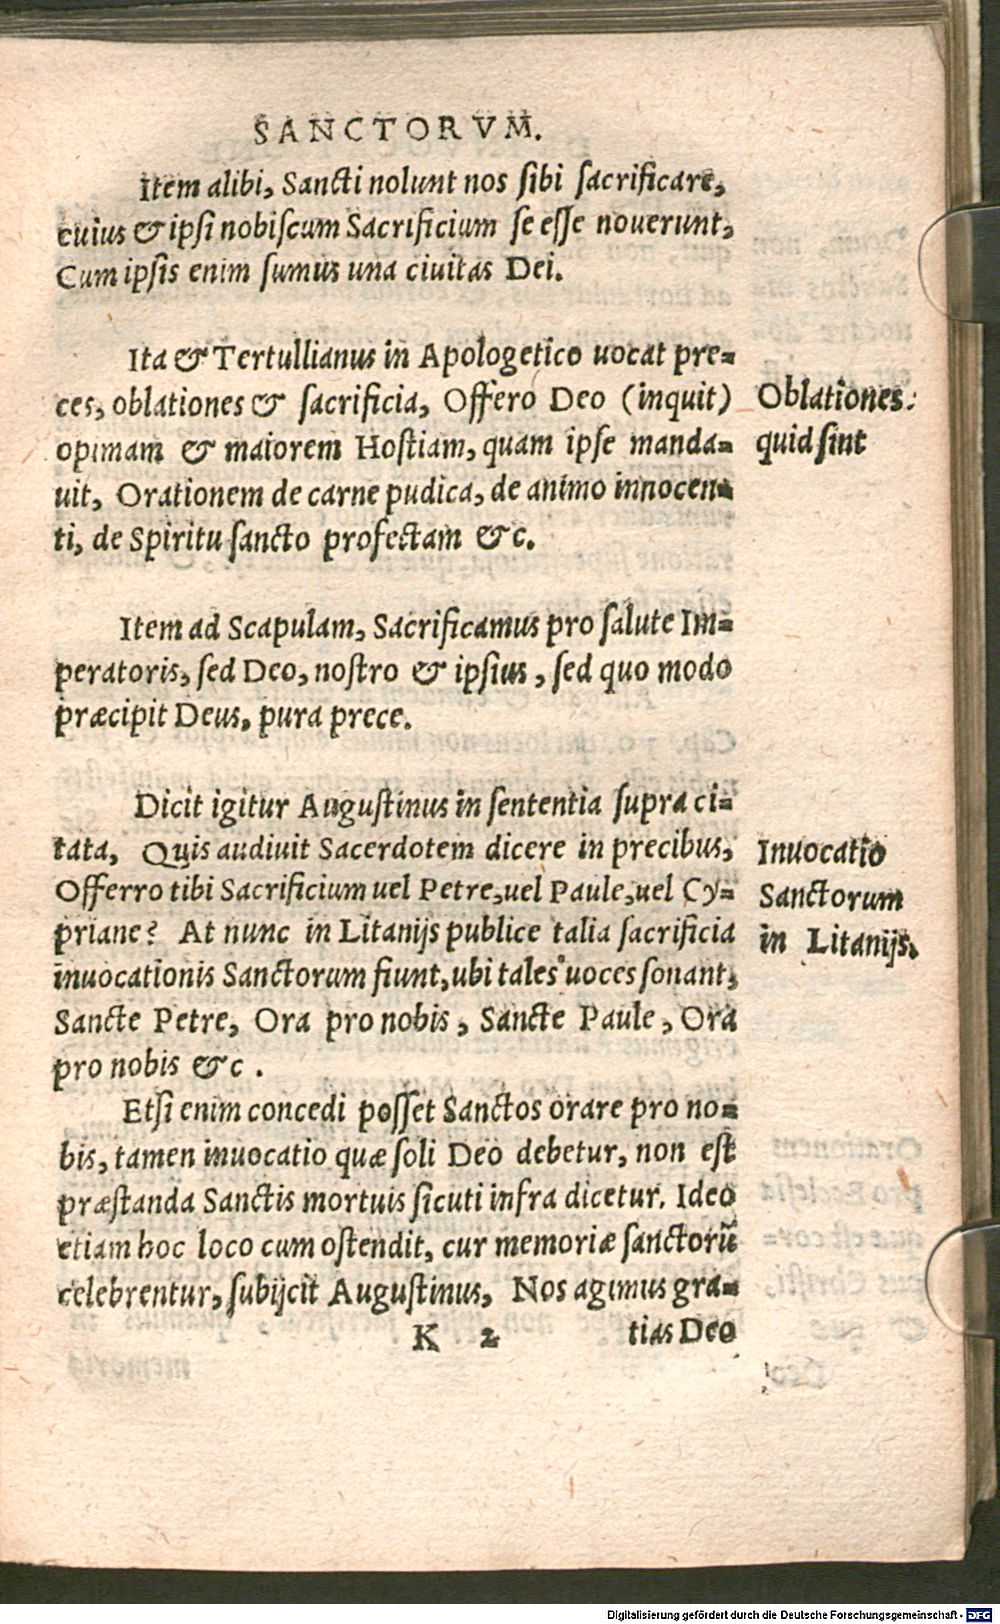 SANCTORVM.
Item alibi, Sancti nolunt nos sibi sacrificare,
cuius & ipsi nobiscum Sacrificium se esse nouerunt,
Cum ipsis enim sumus una ciuitas Dei.
Ita & Tertullianus in Apologetico uocat pre=
ces, oblationes & sacrificia, Offero Deo (inquit)
opimam & maiorem Hostiam, quam ipse manda=
uit, Orationem de carne pudica, de animo innocen=
ti, de Spiritu sancto profectam &c.
Oblationes.
quid sint
Item ad Scapulam, Sacrificamus pro salute Im=
peratoris, sed Deo, nostro & ipsius, sed quo modo
præcipit Deus, pura prece.
Dicit igitur Augustinus in sententia supra ci=
tata, Quis audiuit Sacerdotem dicere in precibus,
Offerro tibi Sacrificium uel Petre, uel Paule, uel Cy=
priane? At nunc in Litanijs publice talia sacrificia
inuocationis Sanctorum fiunt, ubi tales uoces sonant,
Sancte Petre, Ora pro nobis, Sancte Paule, Ora
pro nobis &c.
Inuocatio
Sanctorum
in Litanijs.
Etsi enim concedi posset Sanctos orare pro no=
bis, tamen inuocatio quæ soli Deo debetur, non est
præstanda Sanctis mortuis sicuti infra dicetur. Ideo
etiam hoc loco cum ostendit, cur memoriæ sanctorū
celebrentur, subijcit Augustinus, Nos agimus gra=
K 2 tias Deo
Digitalisierung gefördert durch die Deutsche Forschungsgemeinschaft - DFG